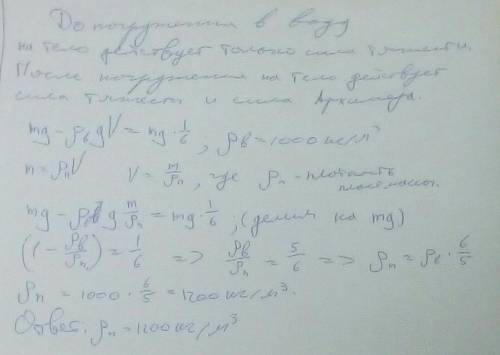 До погружения в воду
на тело действует только сила тяжести.
После погружения на тело действует
сила тяжести и сила Архимеда.
mg - ρв gV = mg · 1/6 ; ρв = 1000 кг/м³
m = ρп V V = m/ρп , где ρп - плотность
пластмассы.
mg - ρв g m/ρп = mg · 1/6 ; (делим на mg)
(1 - ρв/ρп) = 1/6 => ρв/ρп = 5/6 => ρп = ρв · 6/5
ρп = 1000 · 6/5 = 1200 кг/м³.
Ответ. ρп = 1200 кг/м³